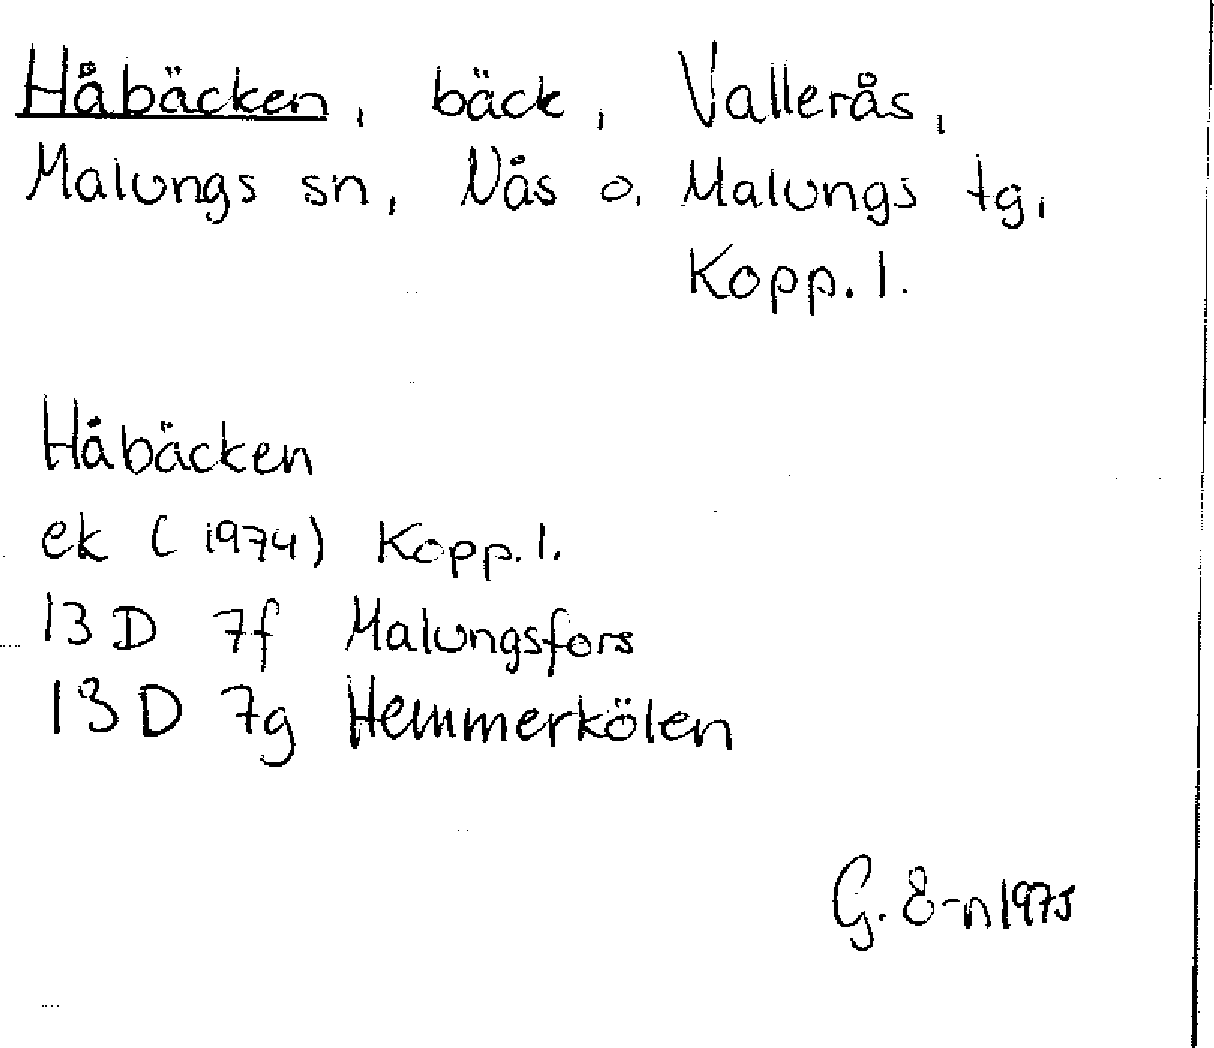 Håbäcken, bäck, Vallerås,
Malungs sn, Nås o. Malungs tg,
Kopp. l.
Håbäcken
ek (1974) Kopp. l.
13 D 7f Malungsfors
13 D 7g Hemmerkölen
G. E-n 1975